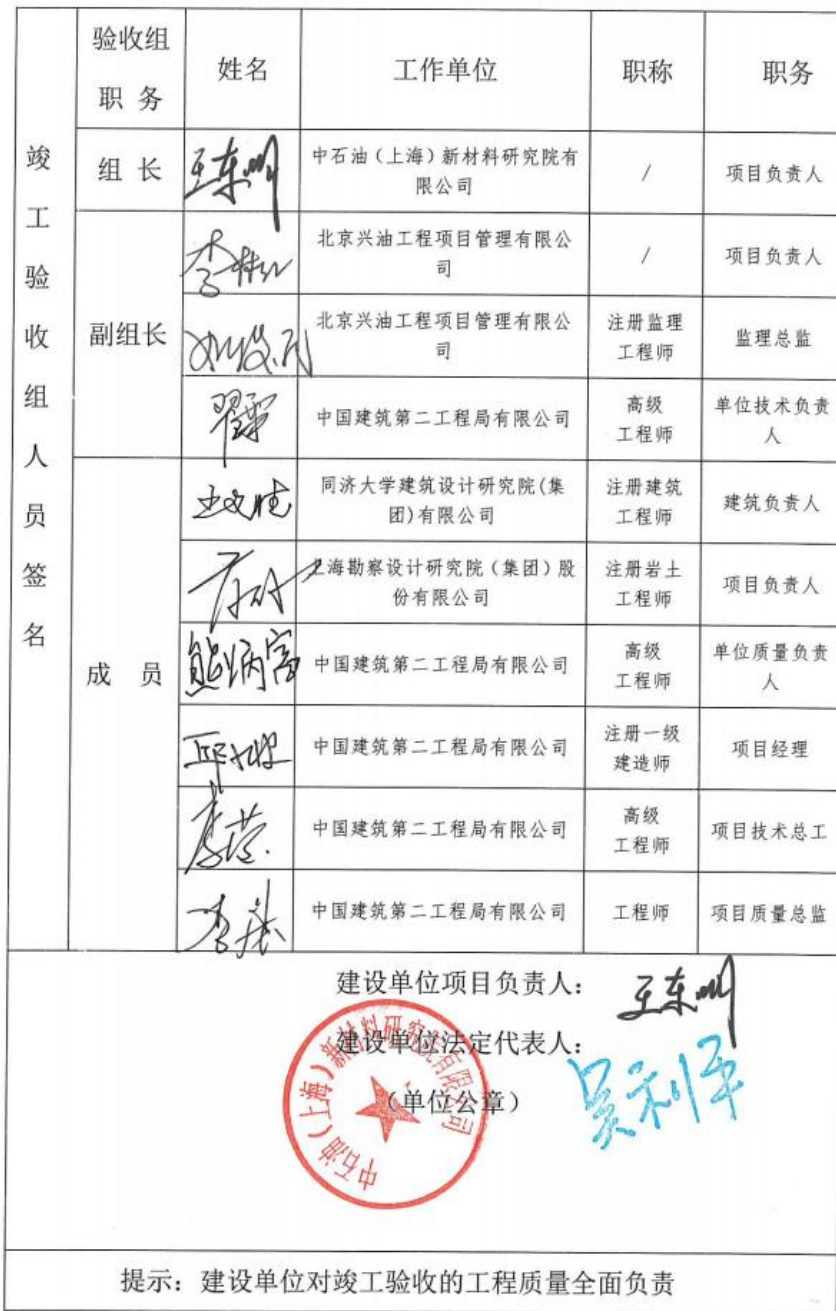 竣工验收组人员签名
验收组
职 务
姓名
工作单位
职称
职务
组 长
王东州
中石油（上海）新材料研究院有
限公司
/
项目负责人
副组长
北京兴油工程项目管理有限公
司
/
项目负责人
北京兴油工程项目管理有限公
司
注册监理
工程师
监理总监
中国建筑第二工程局有限公司
高级
工程师
单位技术负责
人
成 员
同济大学建筑设计研究院(集
团)有限公司
注册建筑
工程师
建筑负责人
上海勘察设计研究院（集团）股
份有限公司
注册岩土
工程师
项目负责人
熊炳富
中国建筑第二工程局有限公司
高级
工程师
单位质量负责
人
中国建筑第二工程局有限公司
注册一级
建造师
项目经理
中国建筑第二工程局有限公司
高级
工程师
项目技术总工
中国建筑第二工程局有限公司
工程师
项目质量总监
建设单位项目负责人：
王东州
建设单位法定代表人：
吴利平
（单位公章）
中石油（上海）新材料研究院有限公司
提示：建设单位对竣工验收的工程质量全面负责